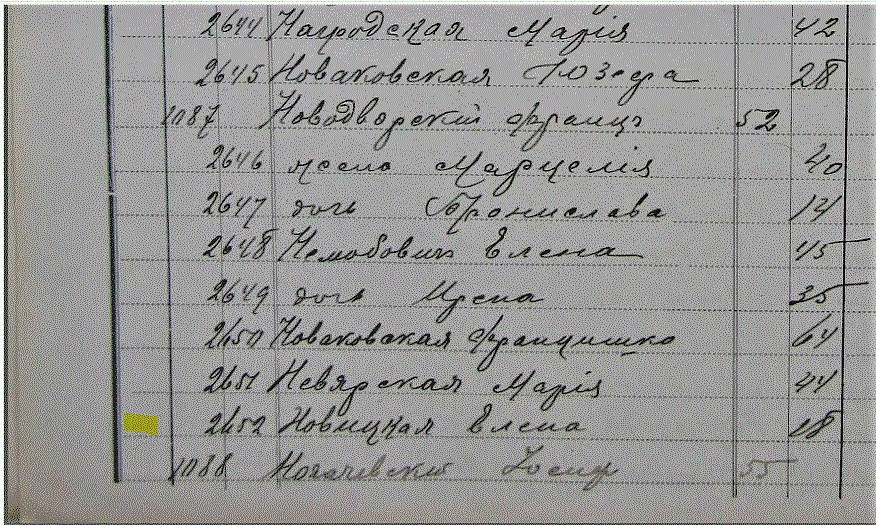 2644 Нагродская Марія 42
2645 Новаковская Юзефа 28
1087 Новодворскій Францъ 52
2646 жена Марцелія 40
2647 дочь Бронислава 14
2648 Немобовичъ Елена 45
2649 дочь Ирена 35
2650 Новаковская Францишка 64
2651 Невярская Марія 44
2652 Новицкая Елена 18
1088 Іосиф 55